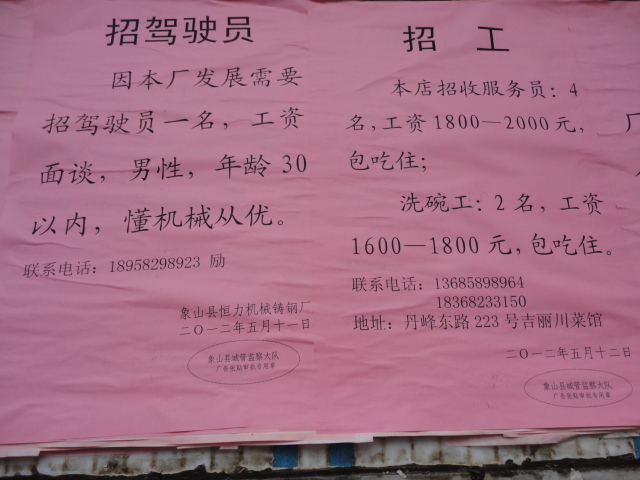 招驾驶员
因本厂发展需要
招驾驶员一名，工资
面谈，男性，年龄30
以内，懂机械从优。
联系电话：18958298923 励
象山县恒力机械铸钢厂
二〇一二年五月十一日
象山县城管监察大队
广告张贴审批专用章
招 工
本店招收服务员：4
名，工资1800—2000元，
包吃住；
洗碗工：2名，工资
1600—1800元，包吃住。
联系电话：13685898964
18368233150
地址：丹峰东路223号吉丽川菜馆
二〇一二年五月十二日
象山县城管监察大队
广告张贴审批专用章